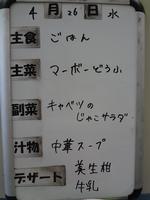 4月26日水
主食 ごはん
主菜 マーボーどうふ
副菜 キャベツの
じゃこサラダ
汁物 中華スープ
デザート 美生柑
牛乳